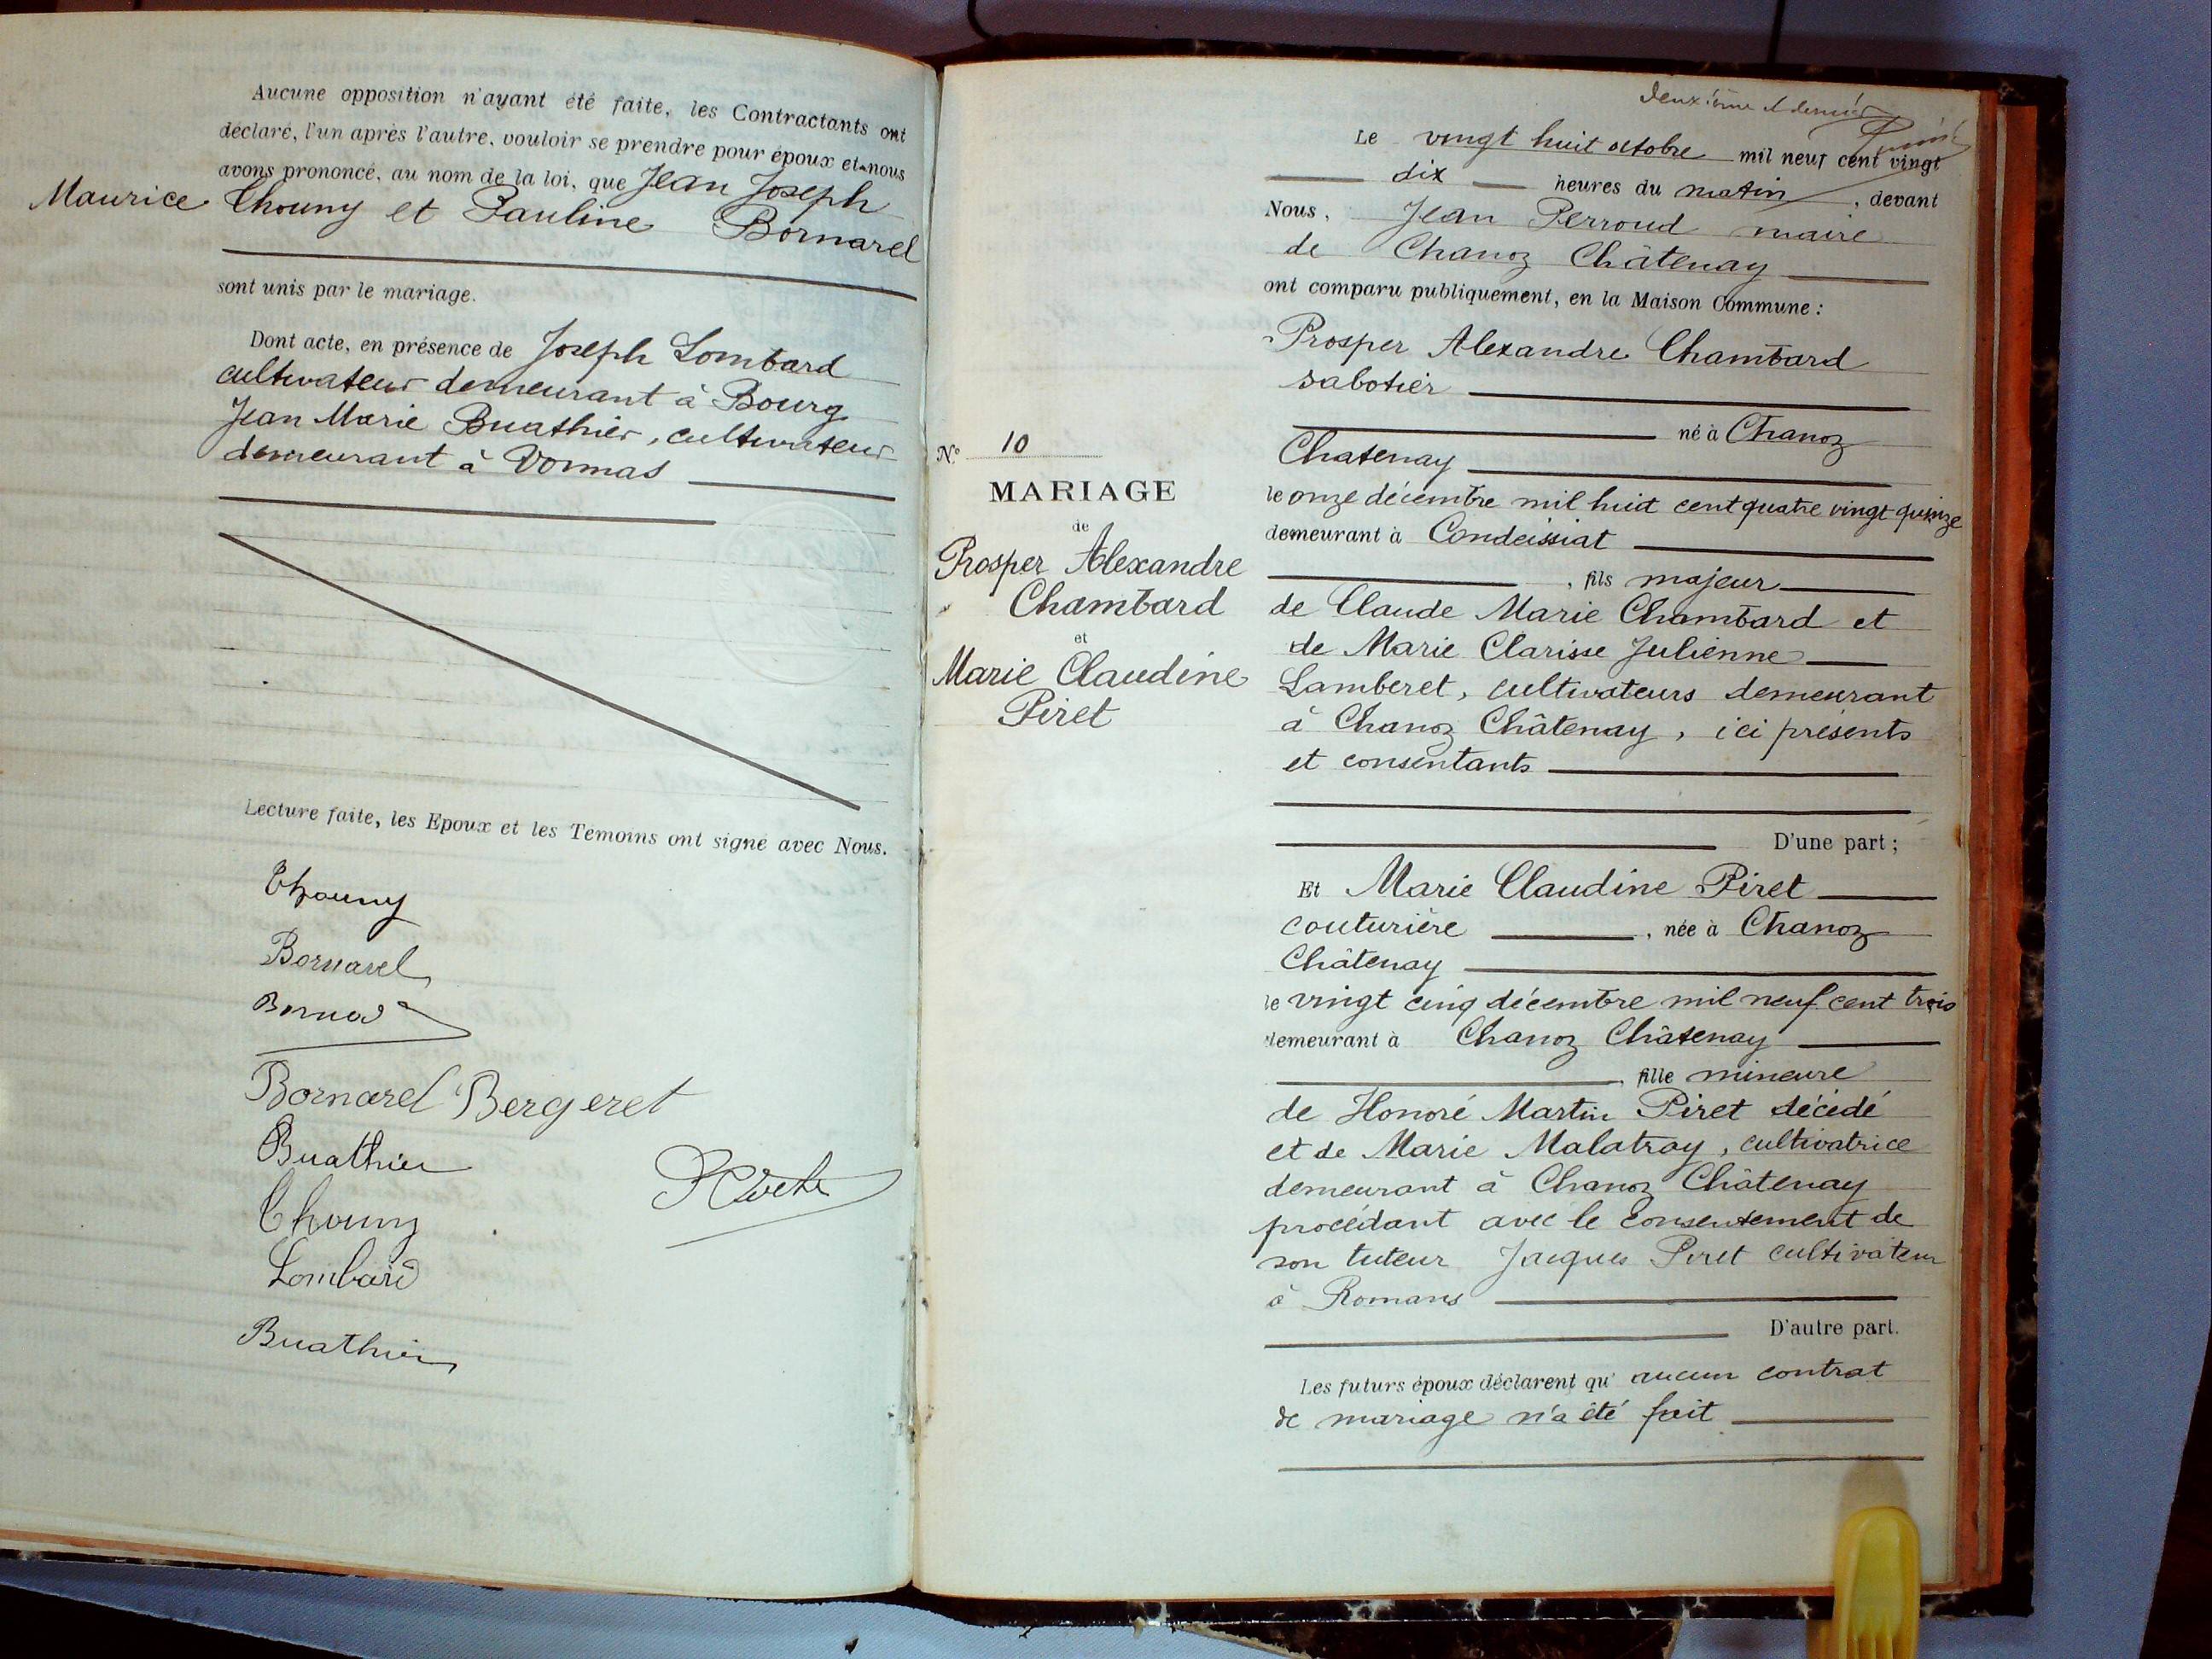 Aucune opposition n'ayant été faite, les Contractants ont
déclaré, l'un après l'autre, vouloir se prendre pour époux et nous
avons prononcé, au nom de la loi, que Jean Joseph
Maurice Chouny et Pauline Bornarel
sont unis par le mariage.
Dont acte, en présence de Joseph Lombard
cultivateur demeurant à Bourg
Jean Marie Buathier, cultivateur
demeurant à Vonnas
Lecture faite, les Epoux et les Témoins ont signé avec Nous.
Chouny
Bornarel
Bornarel Bergeret
Buathier
Chouny
Lombard
Buathier
deuxième et dernier
Le vingt huit octobre mil neuf cent vingt
dix heures du matin, devant
Nous, Jean Perroud maire
de Chanoz Châtenay
ont comparu publiquement, en la Maison Commune :
Prosper Alexandre Chambard
sabotier
né à Chanoz
Chatenay
le onze décembre mil huit cent quatre vingt quinze
demeurant à Condeissiat
, fils majeur
de Claude Marie Chambard et
de Marie Clarisse Julienne
Lamberet, cultivateurs demeurant
à Chanoz Châtenay, ici présents
et consentants
D'une part ;
Et Marie Claudine Piret
couturière, née à Chanoz
Châtenay
le vingt cinq décembre mil neuf cent trois
demeurant à Chanoz Châtenay
, fille mineure
de Honoré Martin Piret décédé
et de Marie Malatray, cultivatrice
demeurant à Chanoz Châtenay
procédant avec le consentement de
son tuteur Jacques Piret cultivateur
à Romans
D'autre part.
Les futurs époux déclarent qu'aucun contrat
de mariage n'a été fait
N° 10
MARIAGE
de
Prosper Alexandre
Chambard
et
Marie Claudine
Piret